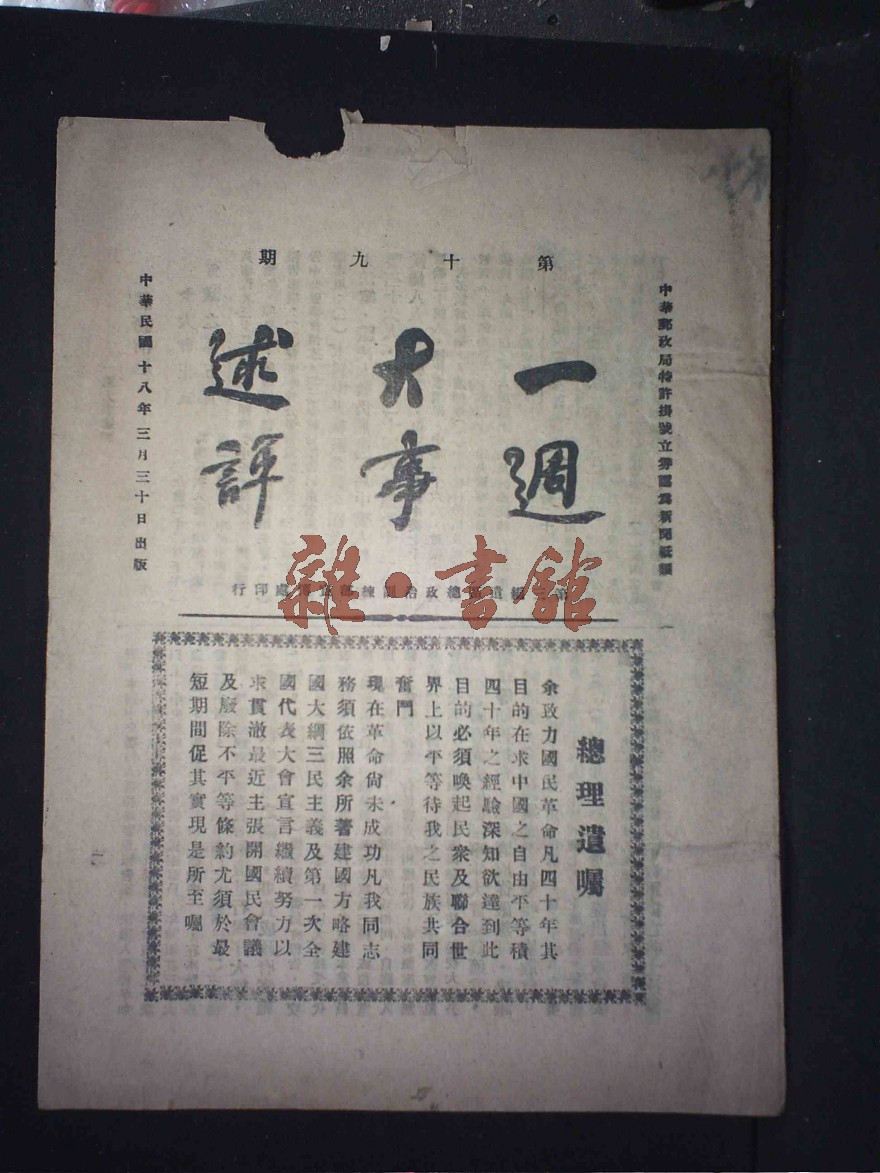 第十九期
一週
大事
述評
中華郵政局特許掛號立券認為新聞紙類
中華民國十八年三月三十日出版
總政治訓練
處印行
雜·書館
總理遺囑
余致力國民革命凡四十年其
目的在求中國之自由平等積
四十年之經驗深知欲達到此
目的必須喚起民衆及聯合世
界上以平等待我之民族共同
奮鬥
現在革命尚未成功凡我同志
務須依照余所著建國方略建
國大綱三民主義及第一次全
國代表大會宣言繼續努力以
求貫澈最近主張開國民會議
及廢除不平等條約尤須於最
短期間促其實現是所至囑